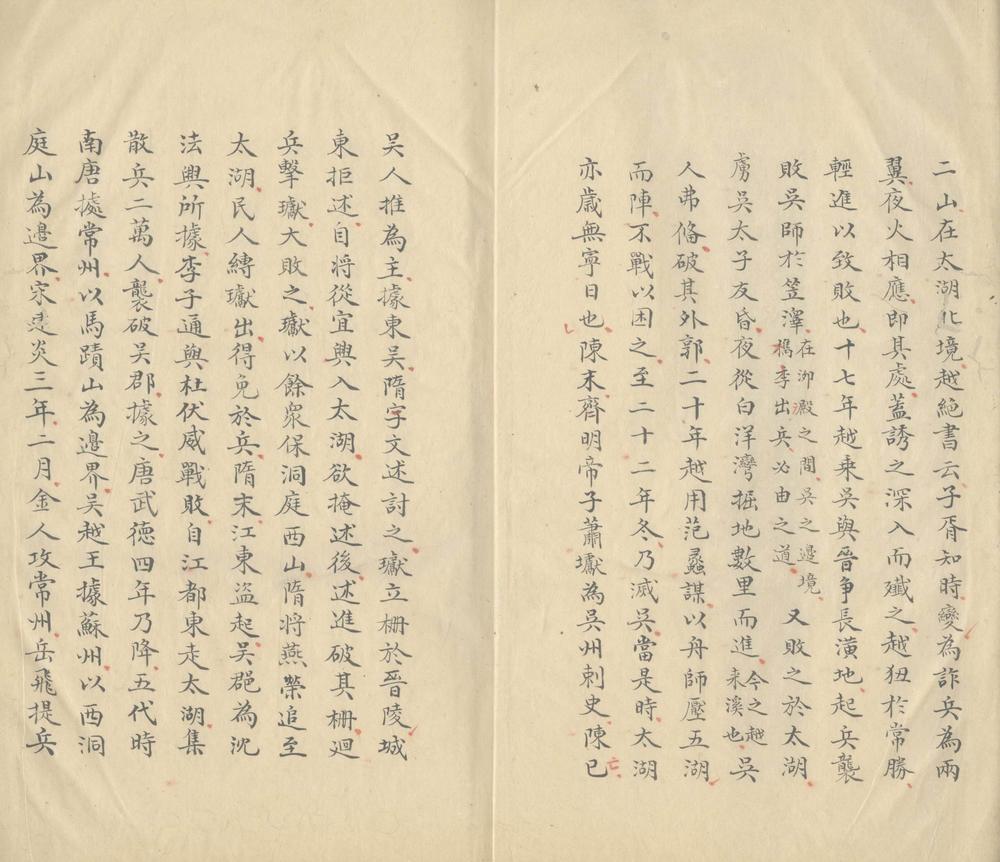 二山在太湖北境越絕書云子胥知時變為詐兵為兩
翼夜火相應即其處蓋誘之深入而殱之越狃於常勝
輕進以致敗也十七年越乘吳與晉爭長潢地起兵襲
敗吳師於笠澤在泖澱之間吳之邊境檇李出兵必由之道又敗之於太湖
虜吳太子友昏夜從白洋灣掘地數里而進今之越来溪也吳
人弗偹破其外郭二十年越用范蠡謀以舟師壓五湖
而陣不戰以困之至二十二年冬乃滅吳當是時太湖
亦歲無寧日也陳末齊明帝子蕭瓛為吳州刺史陳已亡
吳人推為主據東吳隋宇文述討之瓛立柵於晉陵城
東拒述自將從宜興入太湖欲掩述後述進破其柵迴
兵擊瓛大敗之瓛以餘衆保洞庭西山隋將燕榮追至
太湖民人縛瓛出得免於兵隋末江東盜起吳郡為沈
法興所據李子通與杜伏威戰敗自江都東走太湖集
散兵二萬人襲破吳郡據之唐武德四年乃降五代時
南唐據常州以馬蹟山為邊界吳越王據蘇州以西洞
庭山為邊界宋建炎三年二月金人攻常州岳飛提兵